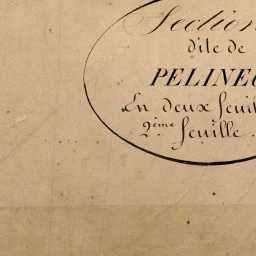 Section
dite de
PELINEC
En deux feuil
2ème feuille.